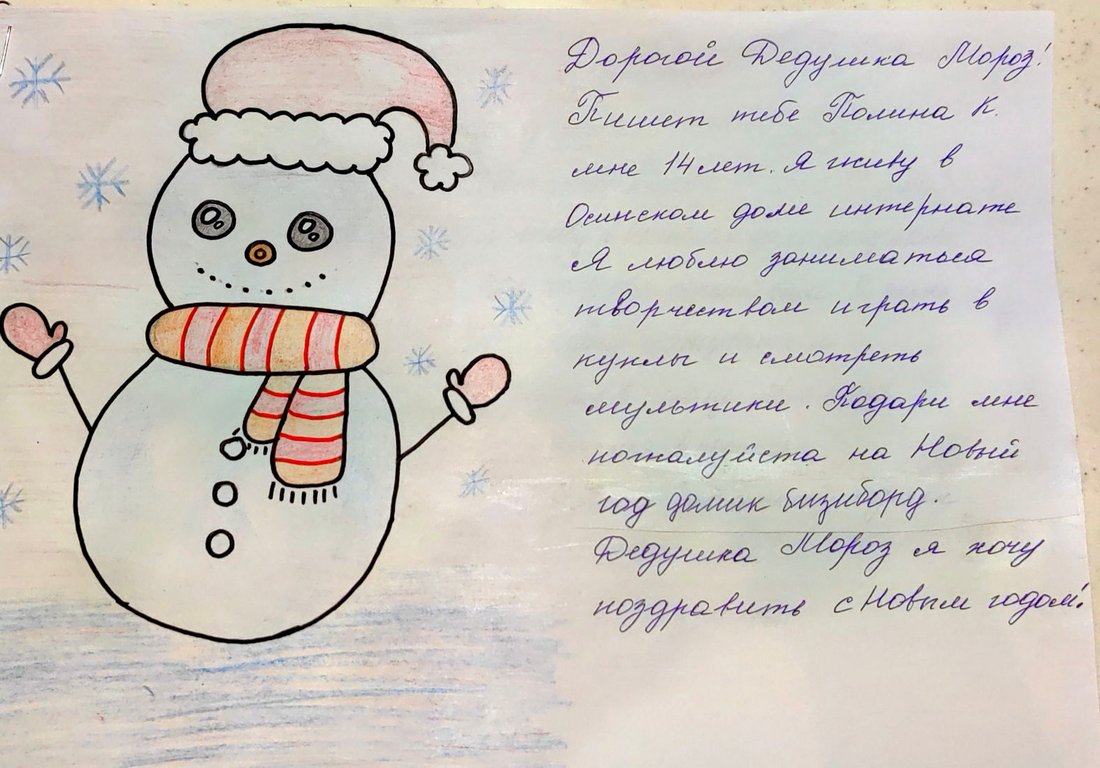 Дорогой Дедушка Мороз!
Пишет тебе Полина К.
мне 14 лет. Я живу в
Осинском доме интернате
Я люблю заниматься
творчеством играть в
куклы и смотреть
мультики. Подари мне
пожалуйста на Новый
год домик бизиборд.
Дедушка Мороз я хочу
поздравить с Новым годом!